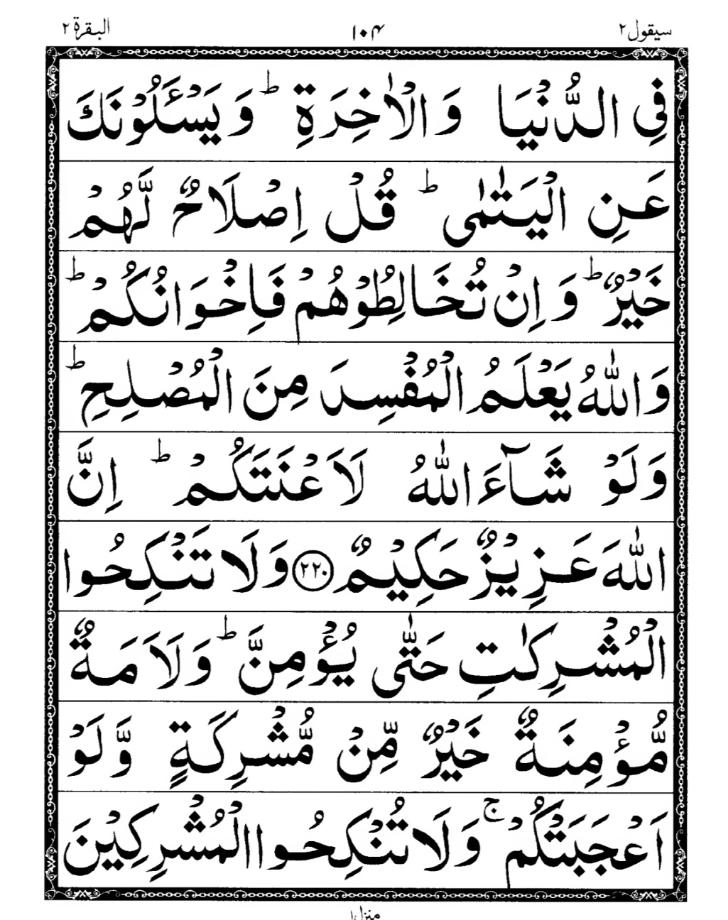 سيقول ٢ ١٠٤ البقرة ٢
فِي الدُّنْيَا وَالْاٰخِرَةِ ؕ وَيَسْـَٔلُوْنَكَ
عَنِ الْيَتٰمٰى ؕ قُلْ اِصْلَاحٌ لَّهُمْ
خَيْرٌ ؕ وَاِنْ تُخَالِطُوْهُمْ فَاِخْوَانُكُمْ ؕ
وَاللّٰهُ يَعْلَمُ الْمُفْسِدَ مِنَ الْمُصْلِحِ ؕ
وَلَوْ شَآءَ اللّٰهُ لَاَعْنَتَكُمْ ؕ اِنَّ
اللّٰهَ عَزِيْزٌ حَكِيْمٌ ﴿٢٢٠﴾ وَلَا تَنْكِحُوا
الْمُشْرِكٰتِ حَتّٰى يُؤْمِنَّ ؕ وَلَاَمَةٌ
مُّؤْمِنَةٌ خَيْرٌ مِّنْ مُّشْرِكَةٍ وَّلَوْ
اَعْجَبَتْكُمْ ۚ وَلَا تُنْكِحُوا الْمُشْرِكِيْنَ
منزل ١